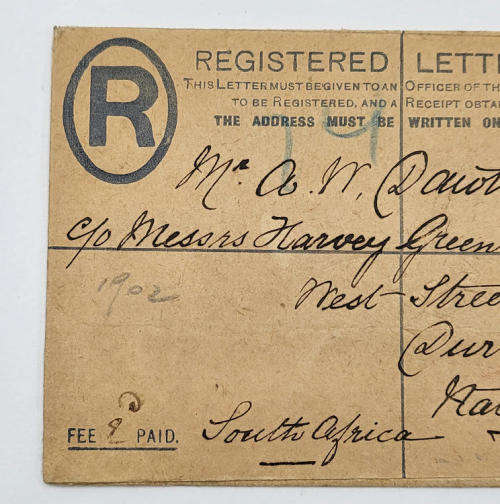 R
REGISTERED LETTE
THIS LETTER MUST BE GIVEN TO AN OFFICER OF TH
TO BE REGISTERED, AND A RECEIPT OBTA
THE ADDRESS MUST BE WRITTEN ON
19
Mr. A. W. Dawt
c/o Messrs Harvey Green
West Stree
Dur
Na
1902
South Africa
FEE 2 D PAID.